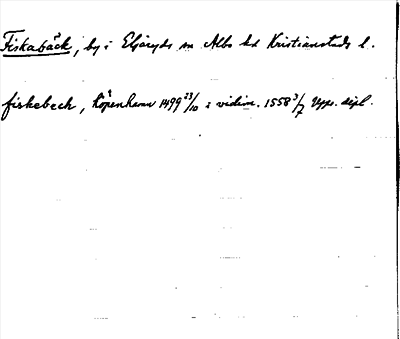 Fiskabäck, by i Eljaröds sn Albo hd Kristianstads l.
fiskebeck, Köpenhamn 1499 23/10 i vidim. 1558 3/7 Upps. dipl.